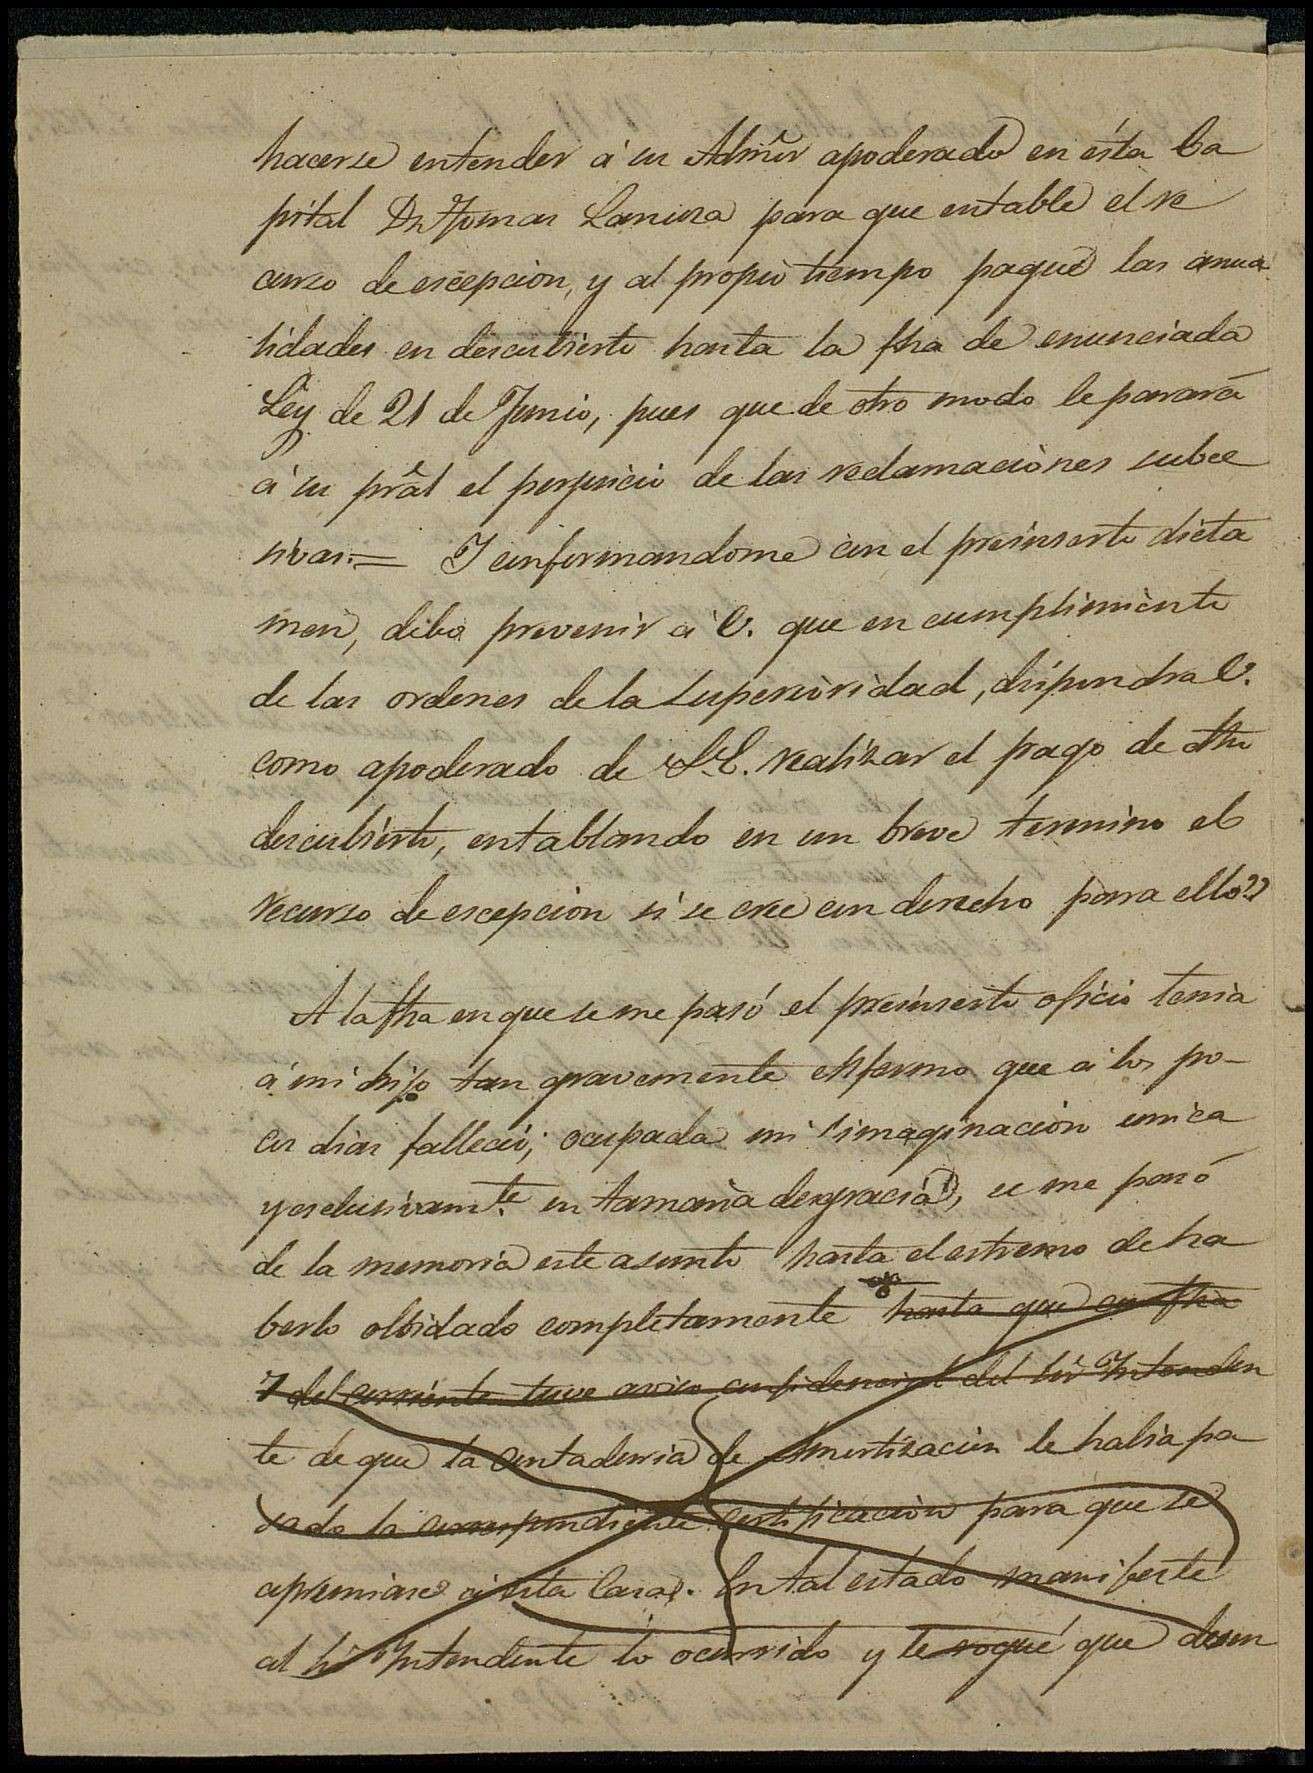 hacerse entender á su Admor apoderado en ésta Ca
pital Dn Tomas Laniera para que entable el re
curso de escepcion, y al propio tiempo pague las anua
lidades en descubierto hasta la fha de enunciada
Ley de 21 de Junio, pues que de otro modo le parará
á su pral el perjuicio de las reclamaciones subce
sivas.= Y conformandome con el preinserto dicta
men, debo prevenir á V. que en cumplimiento
de las ordenes de la Superioridad, dispondra V.
como apoderado de S.E. realizar el pago de dho
descubierto, entablando en un breve termino el
recurso de escepcion si se cree con derecho para ello."
A la fha en que se me pasó el preinserto oficio tenia
á mi hijo tan gravemente enfermo que á los po-
cos dias falleció; ocupada mi imaginacion unica
y esclusivamte. en tamaña desgracia, se me pasó
de la memoria este asunto hasta el estremo de ha
berlo olbidado completamente hasta que con fha
7 del corriente tuve aviso confidencial del Sor Intenden
te de que la Contaduria de Amortizacion le habia pa
sado la correspondiente certificacion para que se
apremiase á esta Casa. En tal estado manifesté
al Sr Intendente lo ocurrido y le rogué que desen